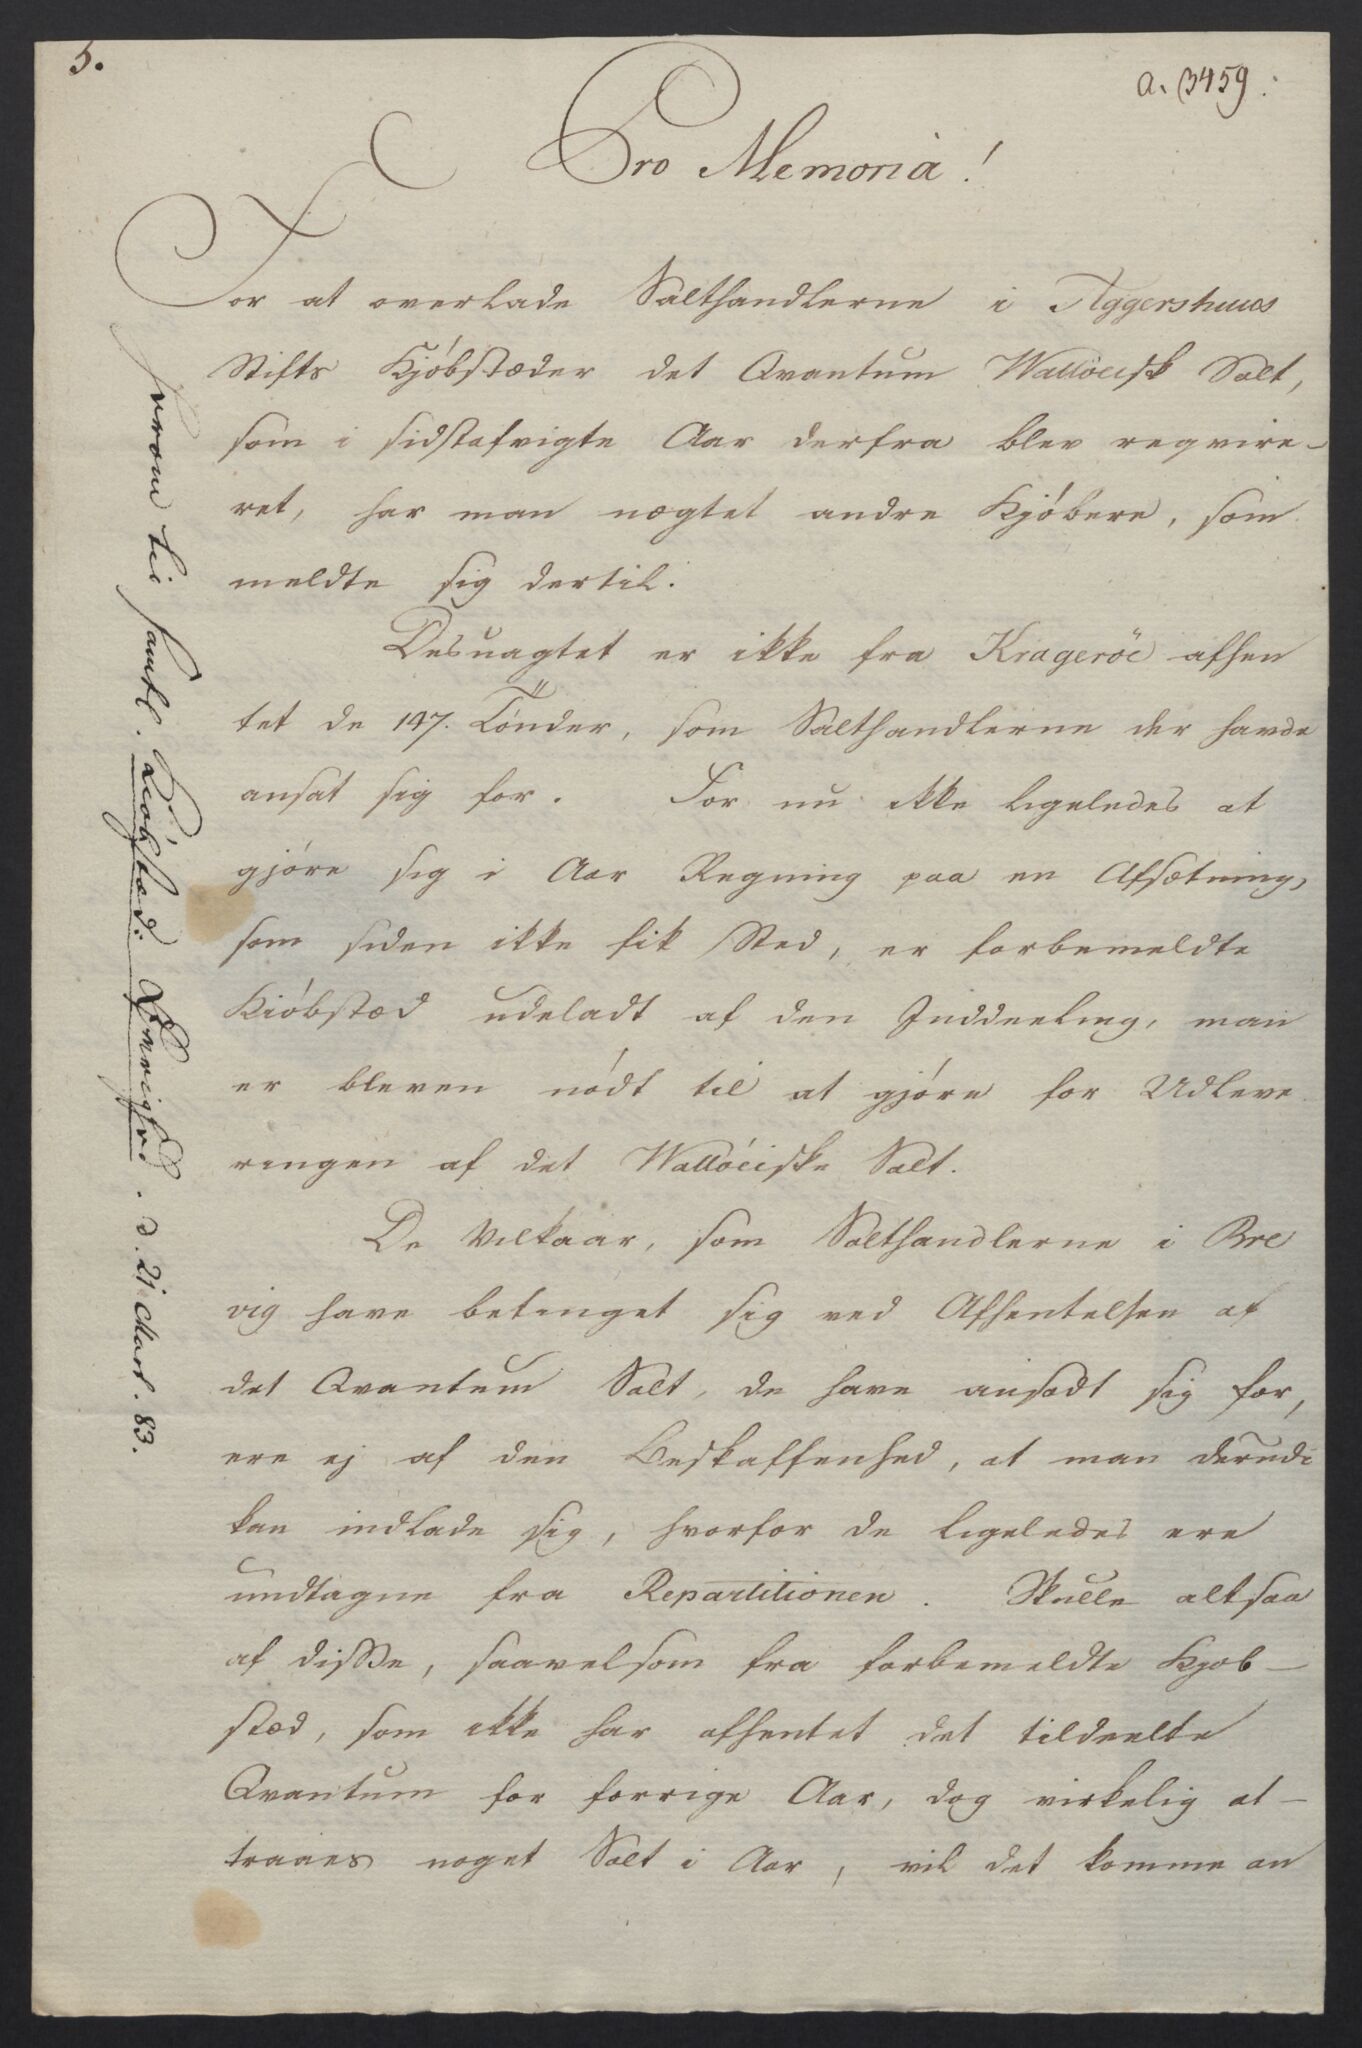 5.
a. 3459.
Pro Memoria!
For at overlade Salthandlerne i Aggershuus
Stifts Kjøbstæder det Qvantum Walløeisk Salt,
som i sidstafvigte Aar derfra blev reqvire-
ret, har man nægtet andre Kjøbere, som
meldte sig dertil.
Desuagtet er ikke fra Kragerøe afhen
tet de 147. Tønder, som Salthandlerne der havde
ansat sig for. For nu ikke ligeledes at
gjøre sig i Aar Regning paa en Afsætning,
som siden ikke fik Sted, er forbemeldte
Kiøbstæd udeladt af den Inddeeling, man
er bleven nødt til at gjøre for Udleve
ringen af det Walløeiske Salt.
De Vilkaar, som Salthandlerne i Bre
vig have betinget sig ved Afhentelsen af
det Qvantum Salt, de have ansadt sig for,
ere ej af den Beskaffenhed, at man derudi
kan indlade sig, hvorfor de ligeledes ere
undtagne fra Repartitionen. Skulle altsaa
af disse, saavelsom fra forbemeldte Kjøb-
stæd, som ikke har afhentet det tildeelte
Qvantum for forrige Aar, dog virkelig at-
traaes noget Salt i Aar, vil det komme an
prom til samtl. Kiøbstæd: Øvrighed. d. 21 Mart. 83.